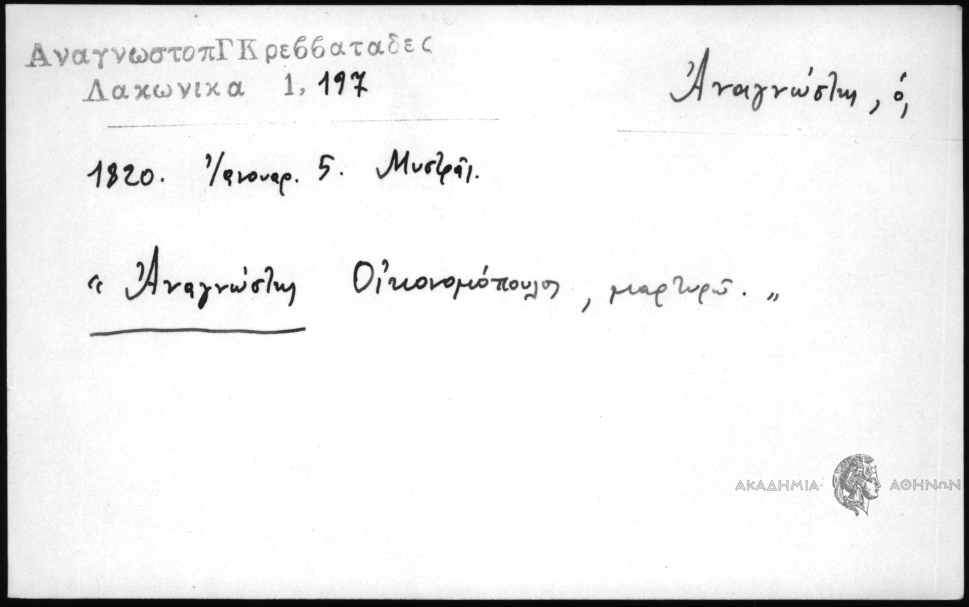 ΑναγνωστοπΓΚρεββαταδες
Λακωνικα 1, 197
Ἀναγνώστης, ὁ,
1820. Ἰανουαρ. 5. Μυστρᾶς.
« Ἀναγνώστης Οἰκονομόπουλος, μαρτυρῶ. »
ΑΚΑΔΗΜΙΑ ΑΘΗΝΩΝ